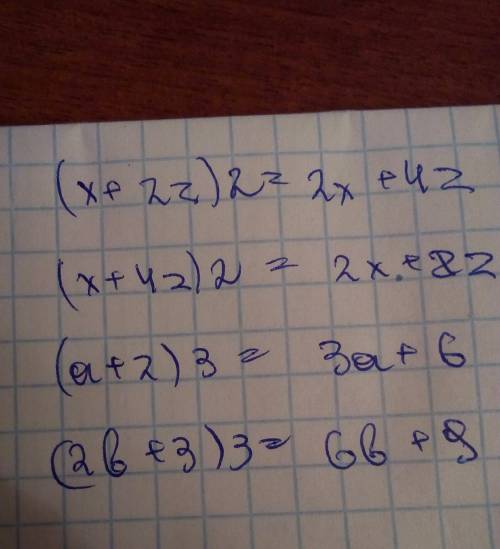 (x+2z)2=2x+4z
(x+4z)2=2x+8z
(a+2)3=3a+6
(2b+3)3=6b+9